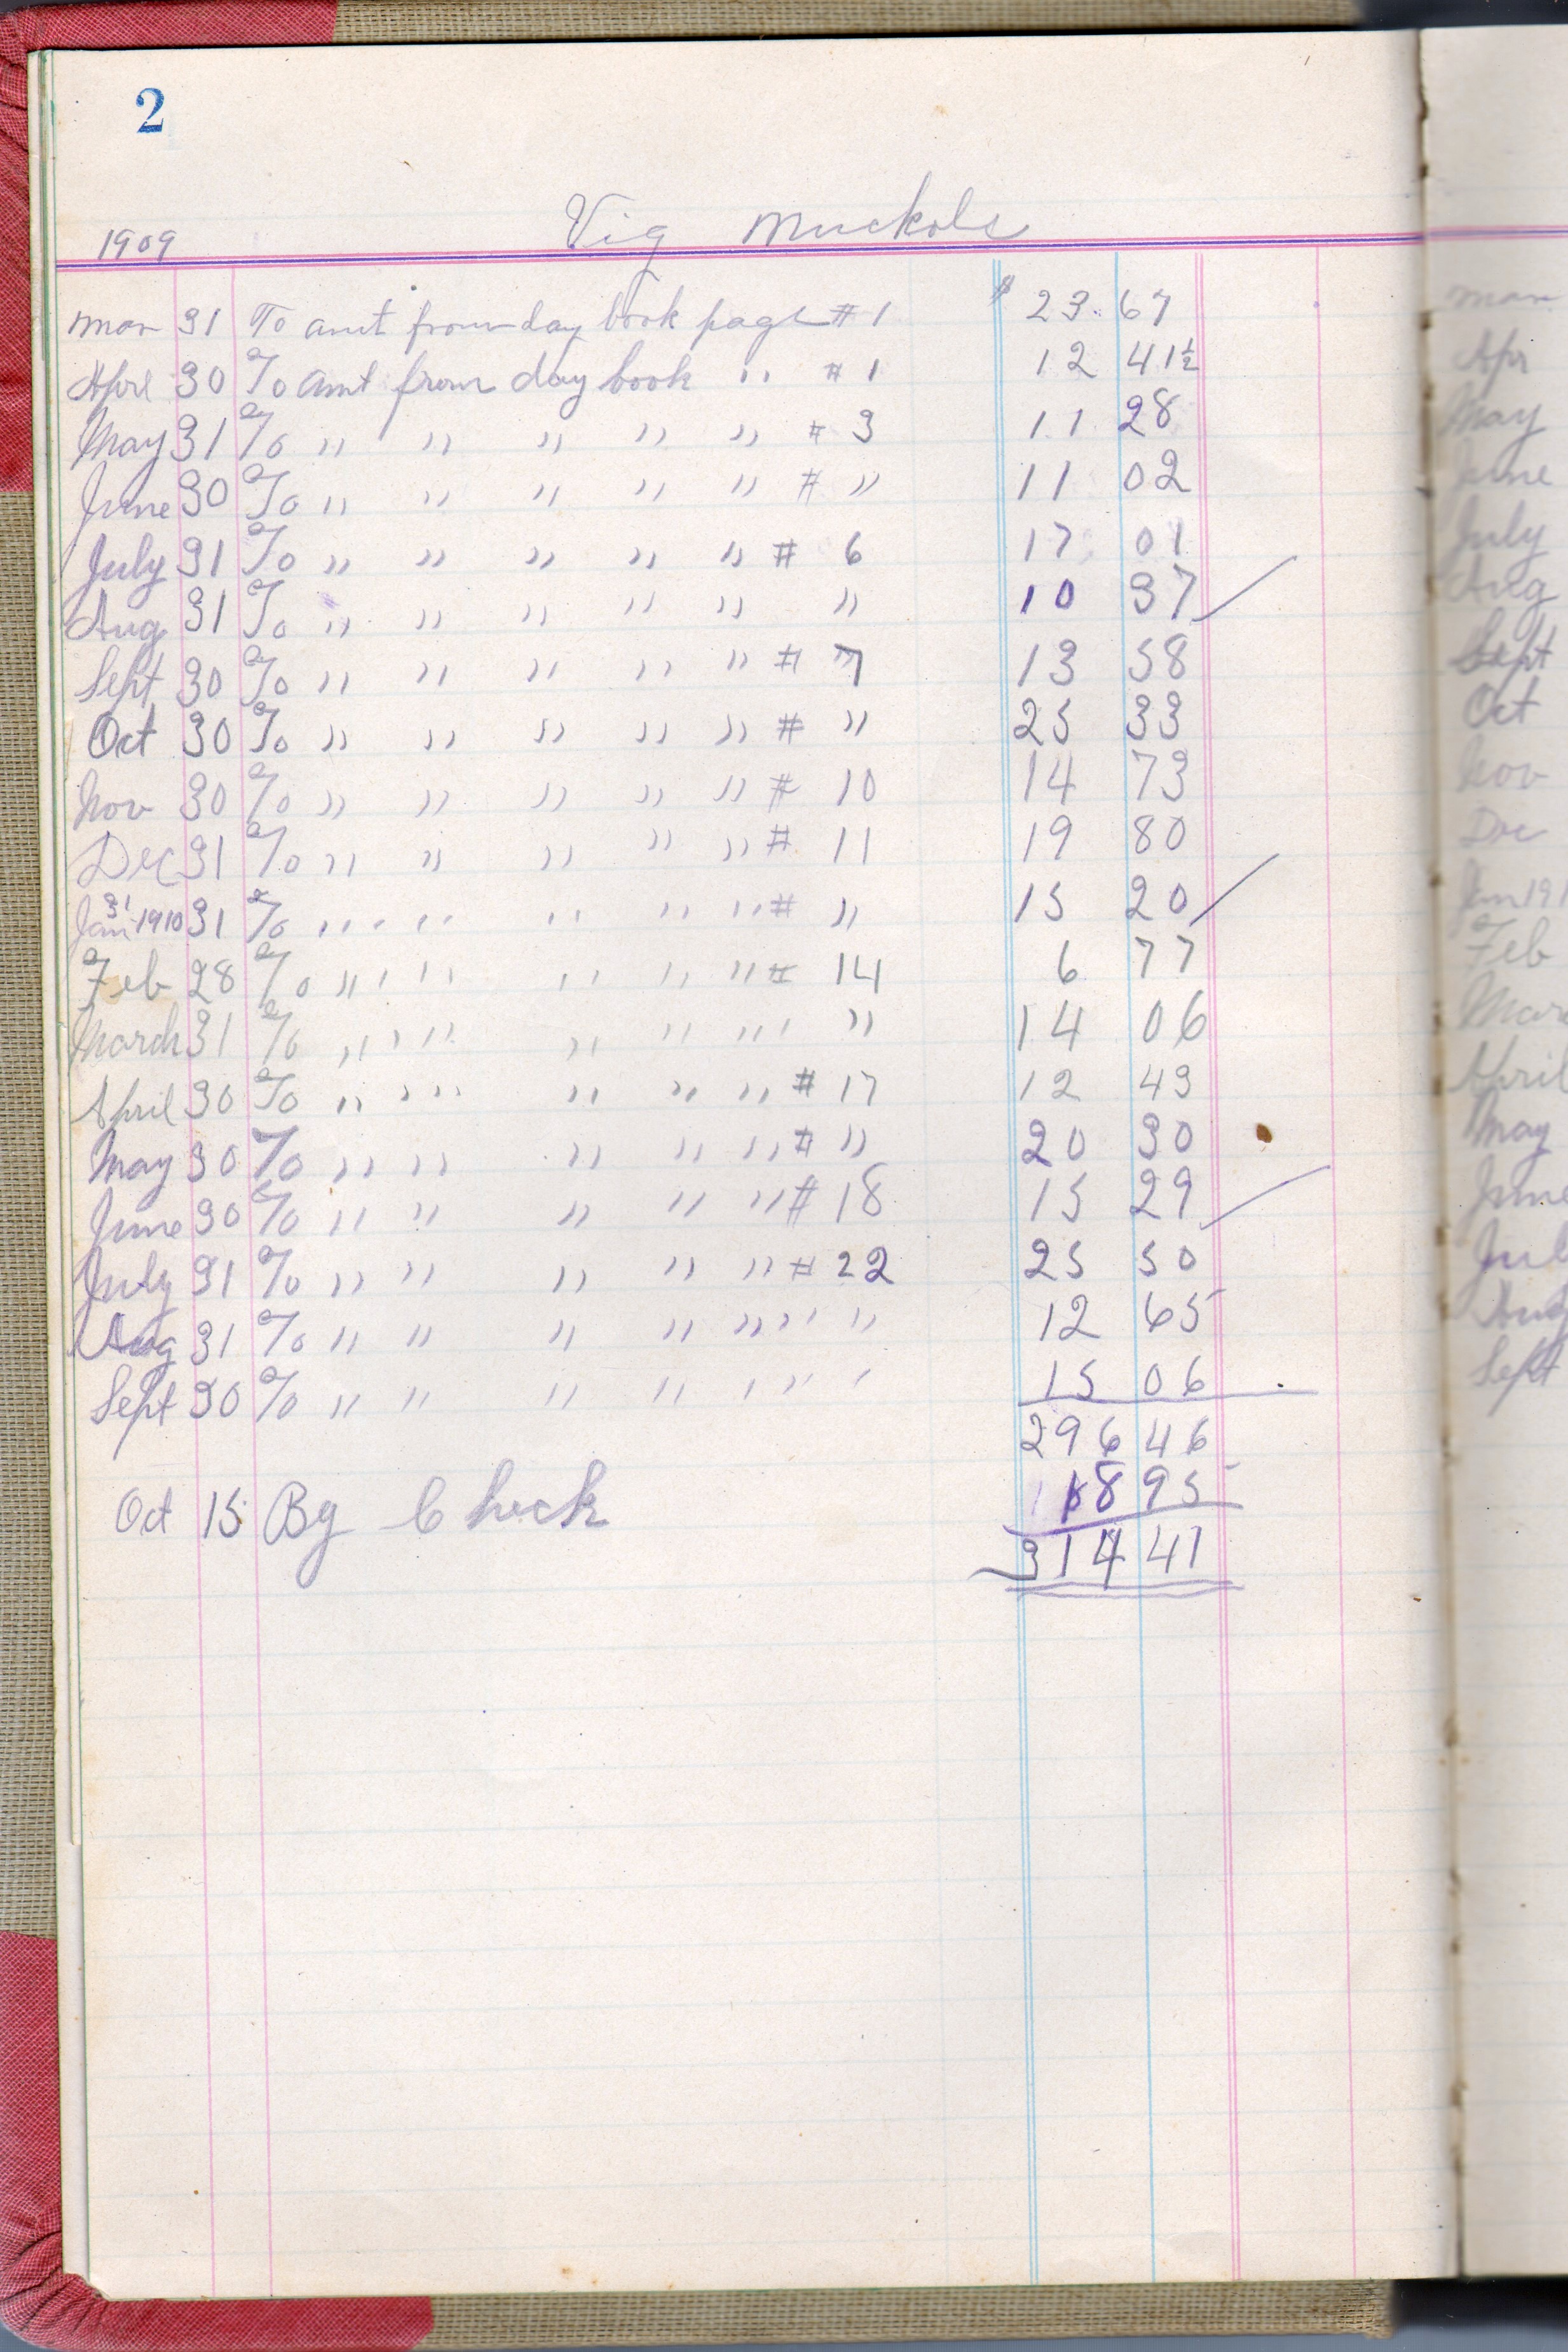 2
Vig Muckols
1909
Mar 31 To amt from day book page #1 $ 23.67
Aprl 30 To amt from day book " #1 12 41½
May 31 To " " " " " # 3 11 28
June 30 To " " " " " # " 11 02
July 31 To " " " " " # 6 17 01
Aug 31 To " " " " " " 10 37
Sept 30 To " " " " " # 7 13 58
Oct 30 To " " " " " # " 25 33
Nov 30 To " " " " " # 10 14 73
Dec 31 To " " " " " # 11 19 80
31
Jan 1910 31 To " " " " " # " 15 20
Feb 28 To " " " " " # 14 6 77
March 31 To " " " " " " 14 06
April 30 To " " " " " # 17 12 43
May 30 To " " " " " # " 20 30
June 30 To " " " " " # 18 15 29
July 31 To " " " " " # 22 25 50
Aug 31 To " " " " " " " 12 65
Sept 30 To " " " " " " " 15 06
296 46
Oct 15 By Check 18 95
314 41
Mar
Apr
May
June
July
Aug
Sept
Oct
Nov
Dec
Jan 191
Feb
Marc
April
May
June
Jul
Aug
Sept